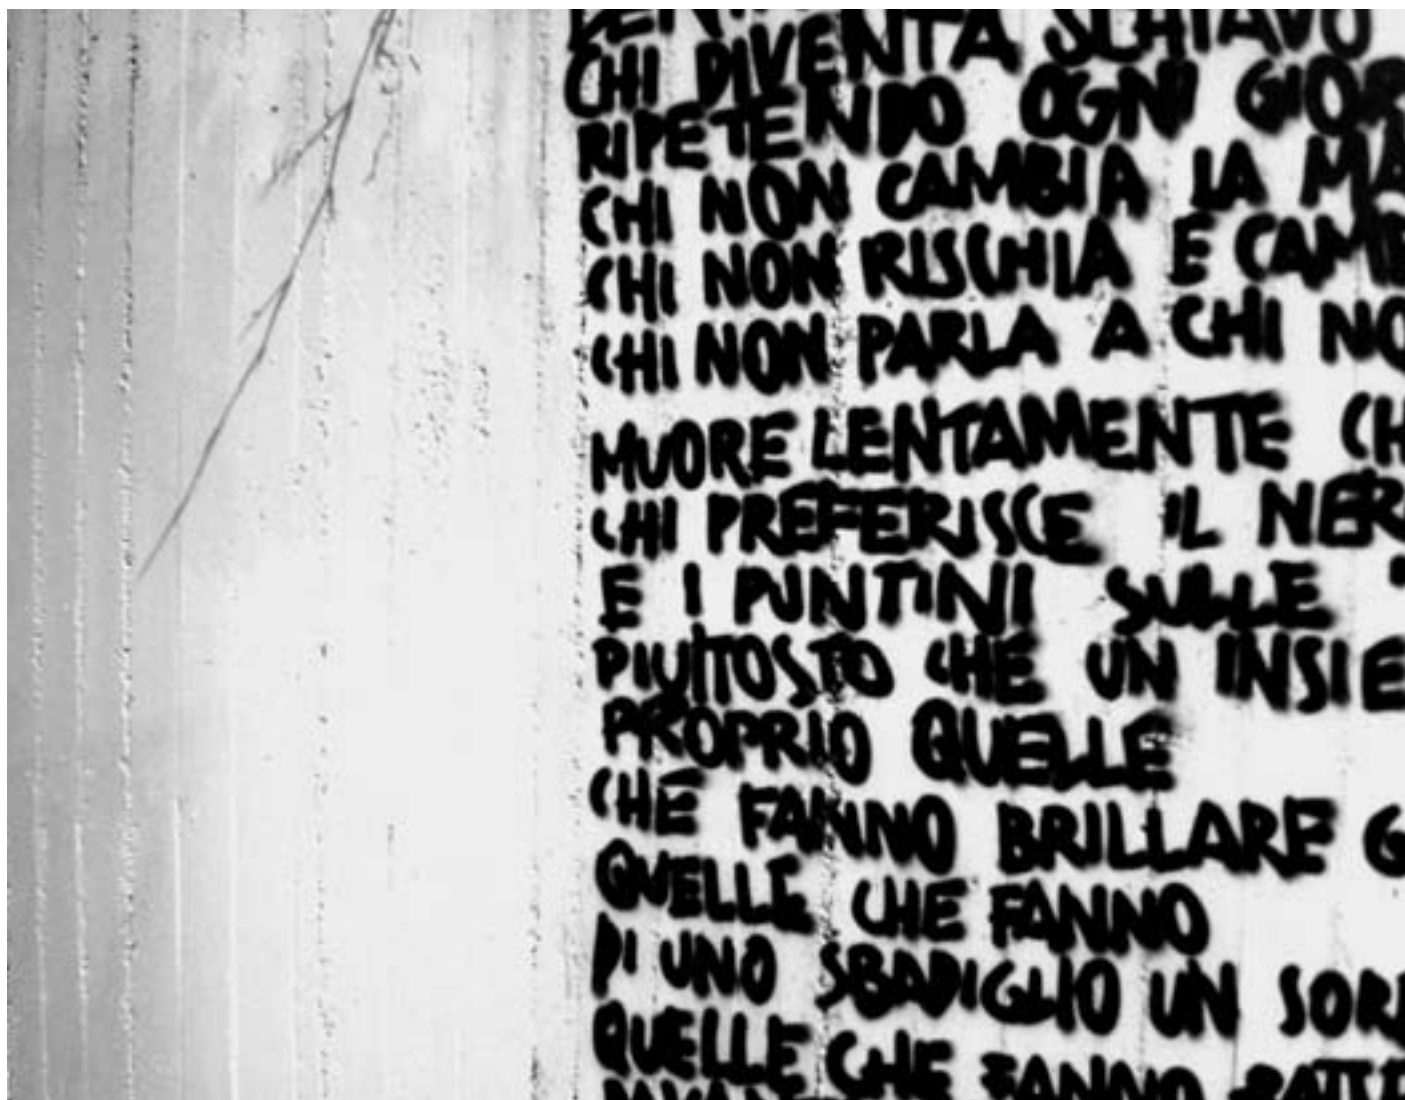 CHI DIVENTA SCHIAVO
RIPETENDO OGNI GIOR
CHI NON CAMBIA LA MA
CHI NON RISCHIA E CAMB
CHI NON PARLA A CHI NO
MUORE LENTAMENTE CH
CHI PREFERISCE IL NER
E I PUNTINI SULLE
PIUTTOSTO CHE UN INSIE
PROPRIO QUELLE
CHE FANNO BRILLARE G
QUELLE CHE FANNO
DI UNO SBADIGLIO UN SORR
QUELLE CHE FANNO BATTE